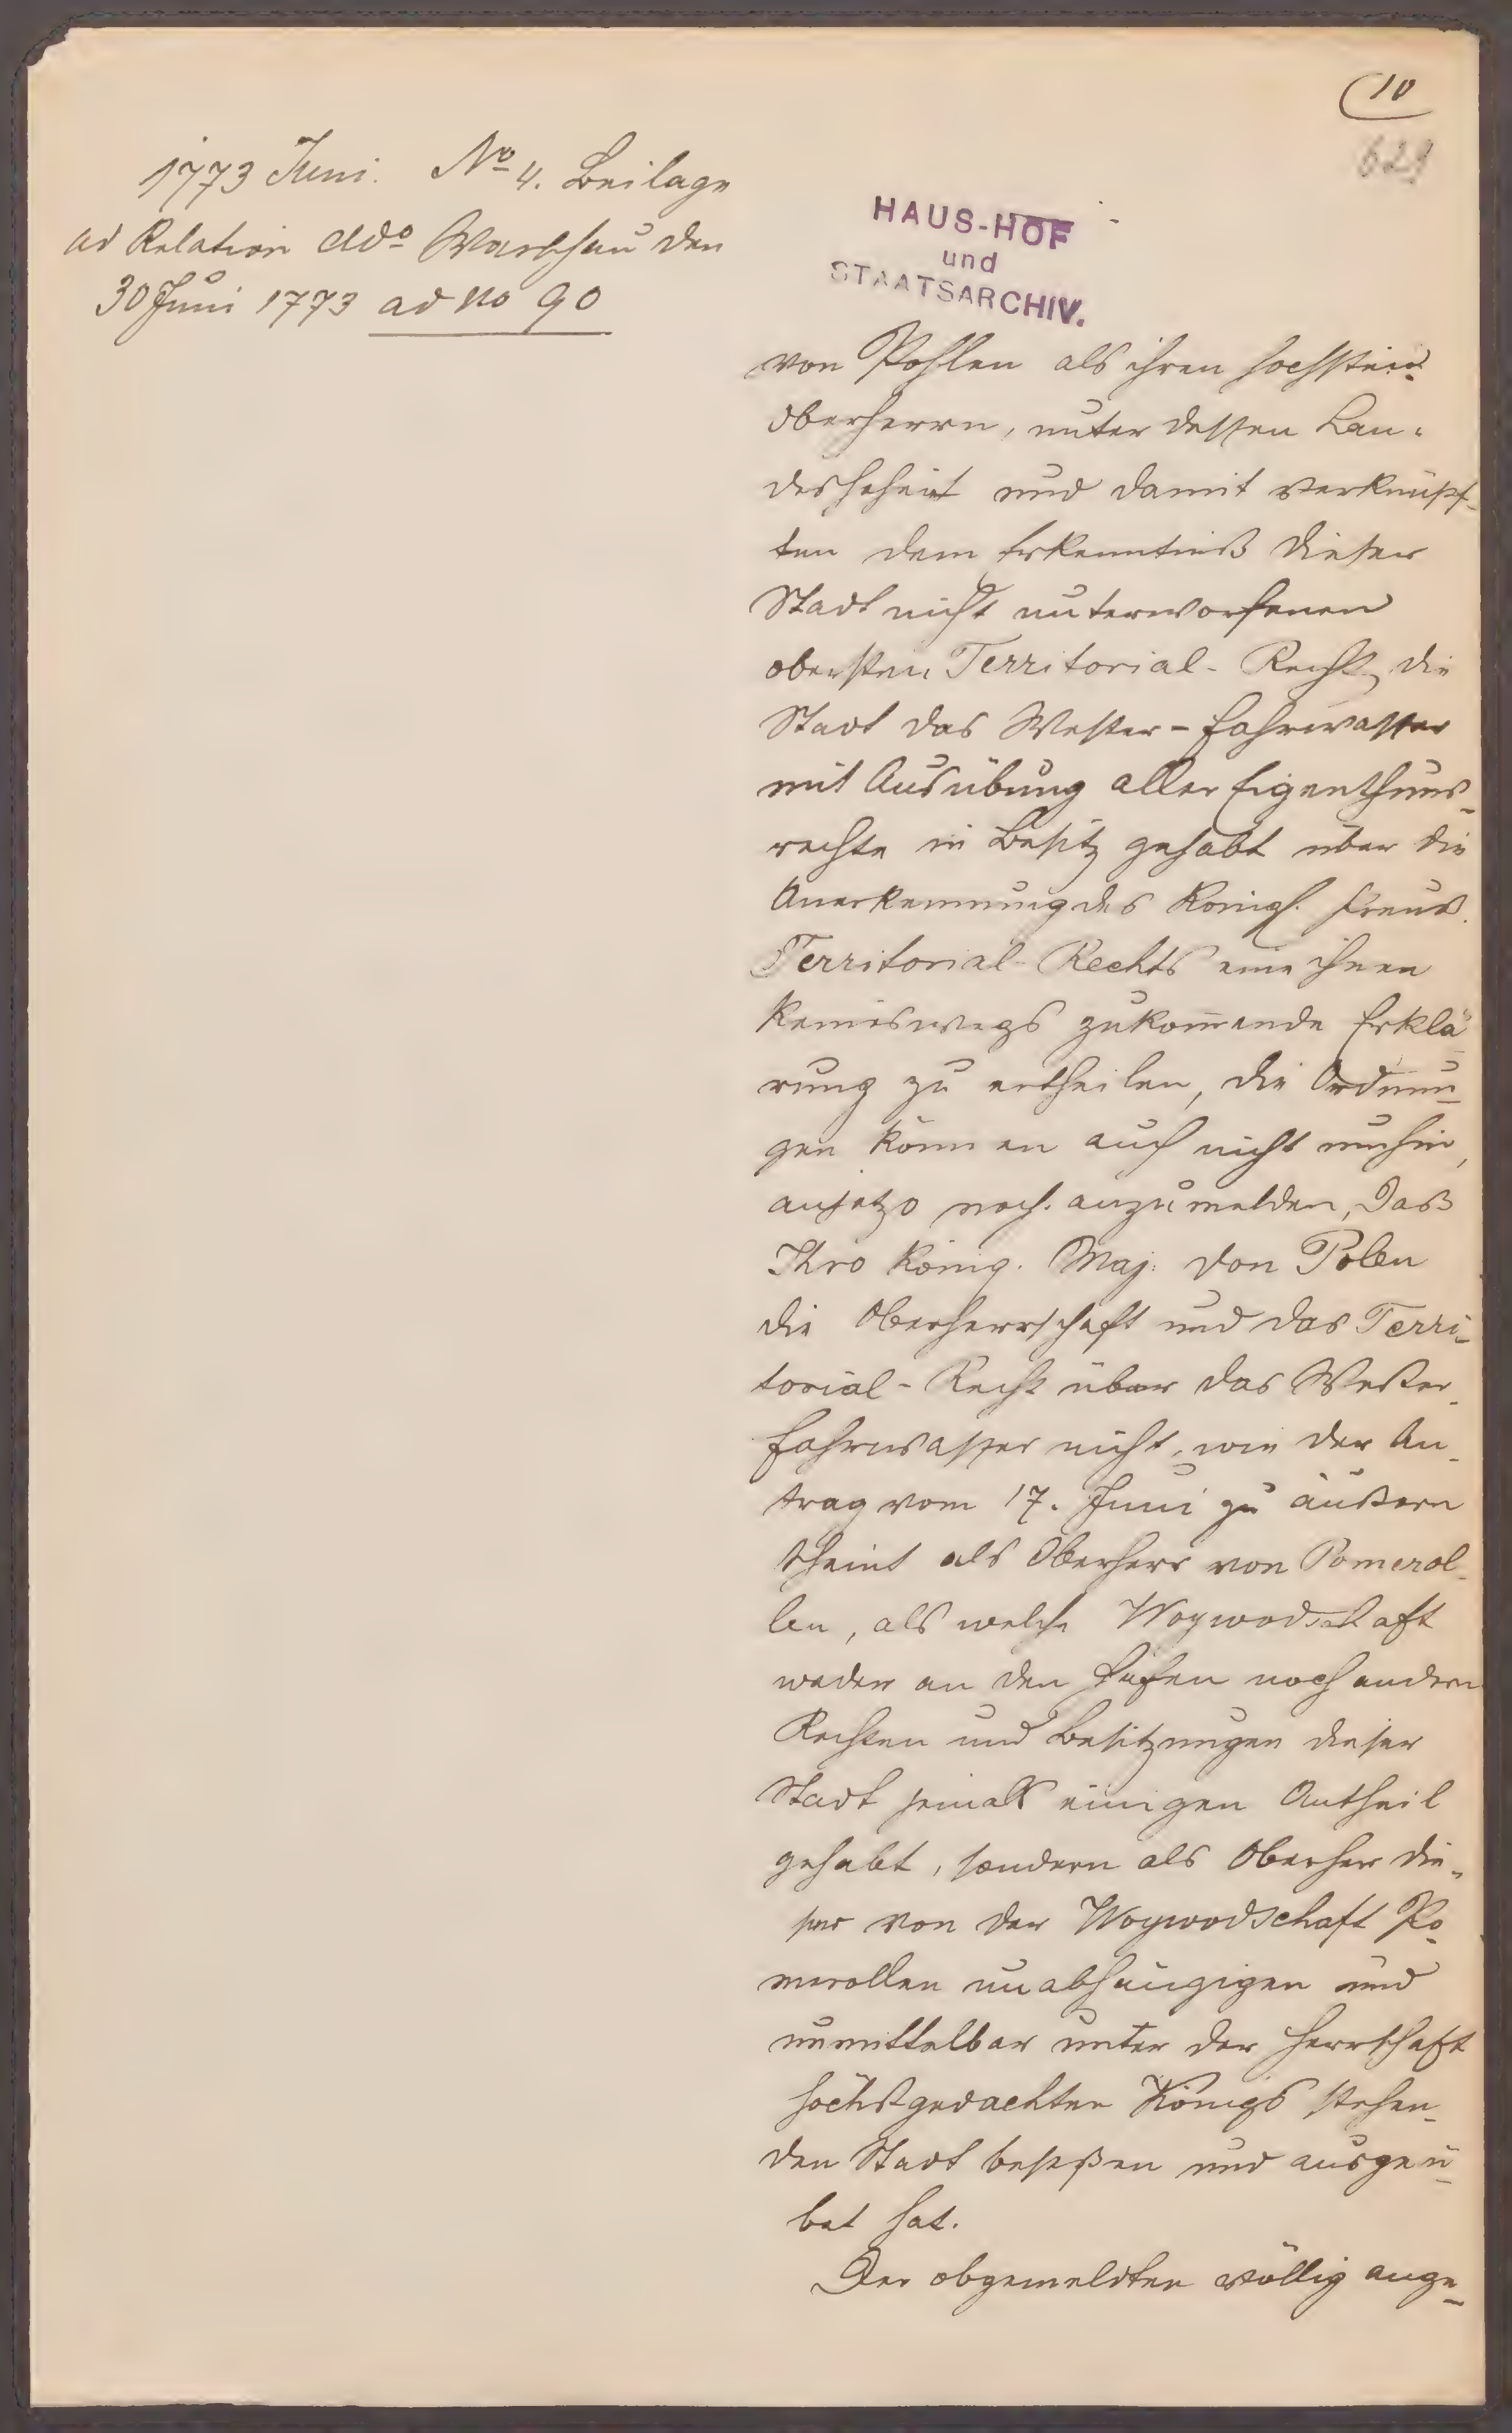 10
629
1773 Juni. No 4. Beilage
ad Relation ddo Warschau den
30 Juni 1773 ad no 90
HAUS-HOF
und
STAATSARCHIV.
von Pohlen als ihren hochsten
Oberherrn, unter dessen Lan-
deshoheit und damit verknüpf-
ten dem Erkenntniß dieser
Stadt nicht unterworfenen
obersten Territorial-Recht die
Stadt das Wester-Fahrwasser
mit Ausübung aller Eigenthums-
rechte in Besitz gehabt über die
Anerkennung des Königl. Preuß.
Territorial-Rechts eine ihnen
keineswegs zukommende Erklä-
rung zu ertheilen, die Ordnun-
gen können auch nicht umhin,
anjetzo noch anzumelden, daß
Ihro König. Maj. von Polen
die Oberherrschaft und das Terri-
torial-Recht über das Wester-
Fahrwasser nicht, wie der An-
trag vom 17. Juni zu äußern
scheint als Oberherr von Pomerol-
len, als welche Woywodschaft
weder an den Hafen noch andern
Rechten und Besitzungen dieser
Stadt jemals einigen Antheil
gehabt, sondern als Oberherr die-
ser von der Woywodschaft Po-
merollen unabhängigen und
unmittelbar unter der Herrschaft
höchstgedachten Königs stehen-
den Stadt beseßen und ausgeü-
bet hat.
Der obgemeldten völlig ange-